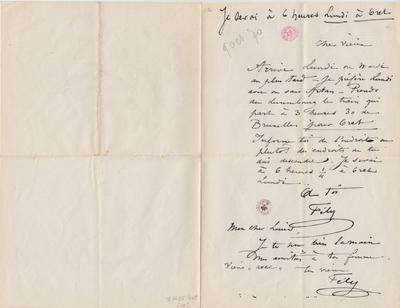 Je serai à 6 heures Lundi à Cret
9 oct 70
Cher vieux
Arrive Lundi ou mardi
au plus tard – je préfère Lundi
avec ou sans Artan – Prends
au Luxembourg le train qui
part à 3 heures 30 de
Bruxelles pour Cret
Informe toi de l'endroit ou
plutôt des endroits où tu
dois descendre. Je serai
à 6 heures 1/4 à Cret
Lundi.
à toi
Fély
Mon cher Louis,
Je te serre bien la main
Mes amitiés à ton
Viens
ton vieux
Fély